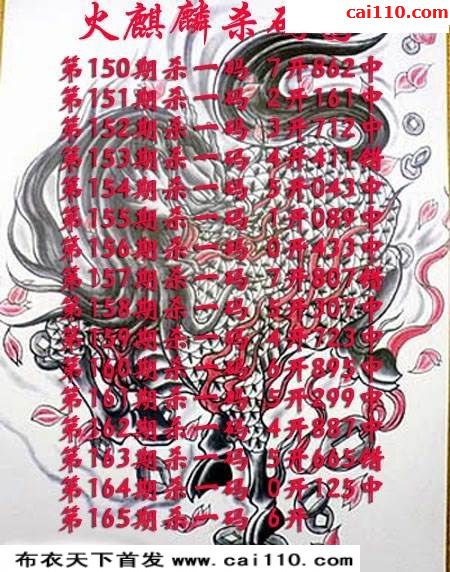 cai110.com
火麒麟杀码
第150期杀一码 7开862中
第151期杀一码 2开161中
第152期杀一码 3开712中
第153期杀一码 4开411错
第154期杀一码 5开043中
第155期杀一码 1开089中
第156期杀一码 0开433中
第157期杀一码 7开807错
第158期杀一码 5开707中
第159期杀一码 4开723中
第160期杀一码 6开895中
第161期杀一码 开899中
第162期杀一码 4开887中
第163期杀一码 5开665错
第164期杀一码 0开125中
第165期杀一码 6开
布衣天下首发 www.cai110.com